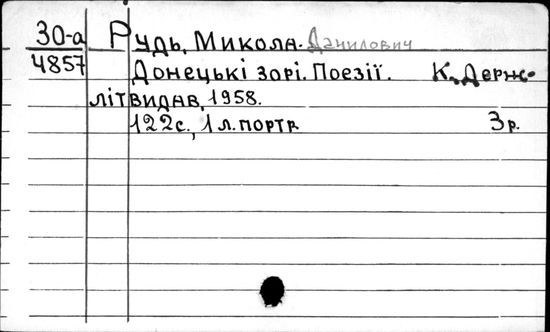 30-а Рудь, Микола Данилович
4857 Донецькі зорі. Поезії. К., Держ-
літвидав, 1958.
122с., 1 л. портр. 3 р.